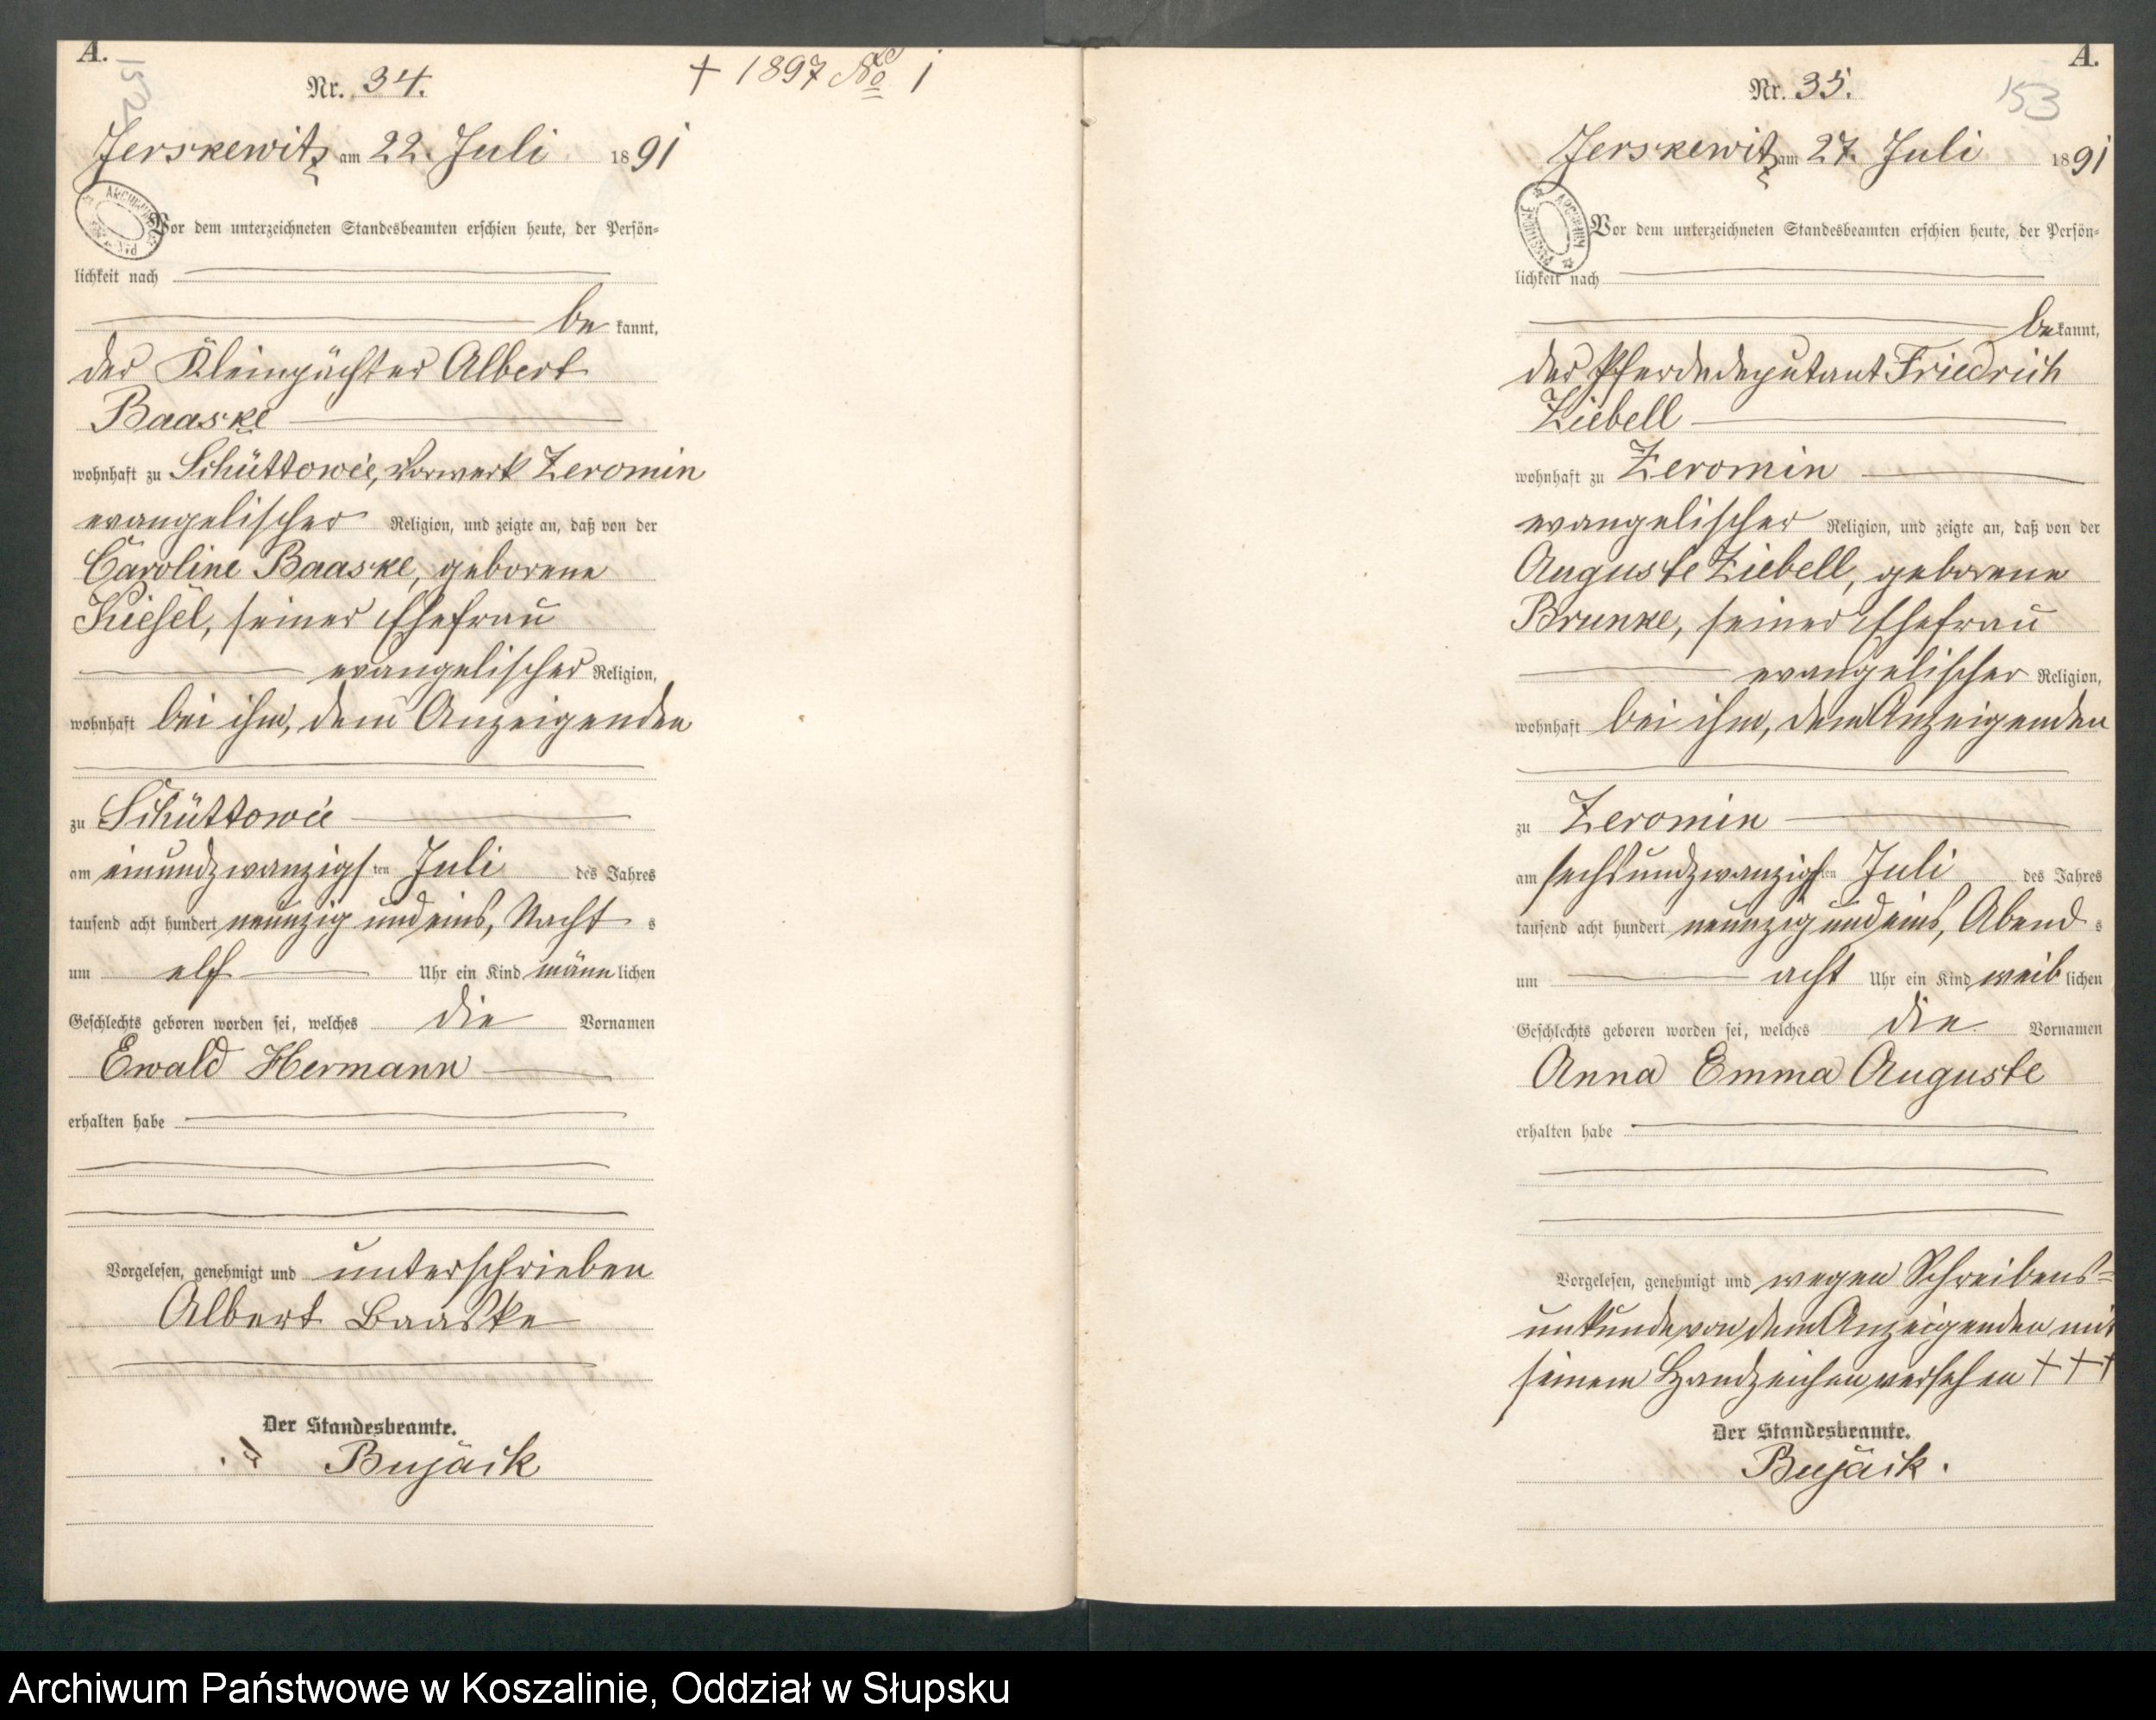 A.
152
Nr. 34.
+ 1897 No 1
Jerskewitz am 22. Juli 1891
Vor dem unterzeichneten Standesbeamten erschien heute, der Persön-
lichkeit nach
be kannt,
der Kleinpächter Albert
Baaske
wohnhaft zu Schüttowie, Vorwerk Zeromin
evangelischer Religion, und zeigte an, daß von der
Caroline Baaske, geborene
Kiesel, seiner Ehefrau
evangelischer Religion,
wohnhaft bei ihm, dem Anzeigenden
zu Schüttowie
am einundzwanzigsten Juli des Jahres
tausend acht hundert neunzig und eins, Nacht s
um elf Uhr ein Kind männlichen
Geschlechts geboren worden sei, welches die Vornamen
Ewald Hermann
erhalten habe
Vorgelesen, genehmigt und unterschrieben
Albert Baaske
Der Standesbeamte.
Bujäck
A.
153
Nr. 35.
Jerskewitz am 27. Juli 1891
ARCHIWUM PAŃSTWOWE
Vor dem unterzeichneten Standesbeamten erschien heute, der Persön-
lichkeit nach
be kannt,
der Pferdedeputant Friedrich
Ziebell
wohnhaft zu Zeromin
evangelischer Religion, und zeigte an, daß von der
Auguste Ziebell, geborene
Brunke, seiner Ehefrau
evangelischer Religion,
wohnhaft bei ihm, dem Anzeigenden
zu Zeromin
am sechsundzwanzigsten Juli des Jahres
tausend acht hundert neunzig und eins, Abend s
um acht Uhr ein Kind weiblichen
Geschlechts geboren worden sei, welches die Vornamen
Anna Emma Auguste
erhalten habe
Vorgelesen, genehmigt und wegen Schreibens-
unkunde von dem Anzeigenden mit
seinem Handzeichen versehen + + +
Der Standesbeamte.
Bujäck.
Archiwum Państwowe w Koszalinie, Oddział w Słupsku